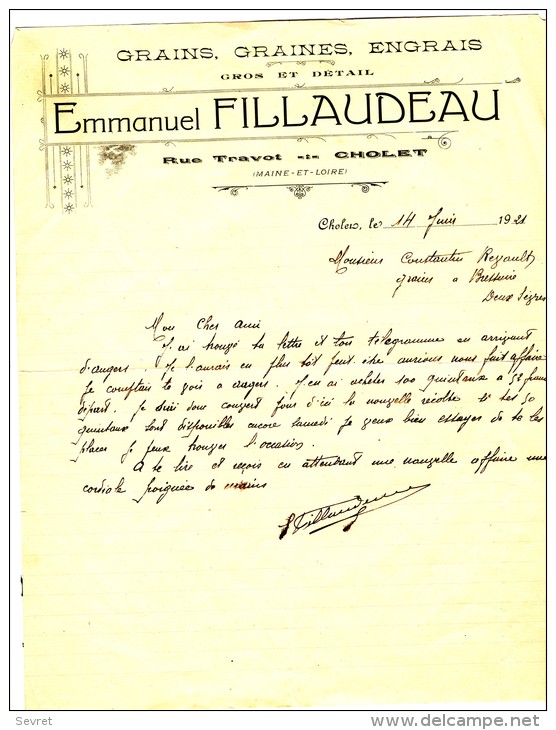 GRAINS, GRAINES, ENGRAIS
GROS ET DÉTAIL
Emmanuel FILLAUDEAU
Rue Travot CHOLET
(MAINE-ET-LOIRE)
Cholet, le 14 Juin 1921
Monsieur Constantin
grains a Bressuire
Deux Sèvres
Mon Cher Ami
J'ai trouvé ta lettre et ton télégramme en arrivant
d'angers. Je l'aurais eu plus tôt peut être aurions nous fait affaire
Je comptais te voir a angers. J'en ai acheter 100 quintaux a 52 francs
départ. Je suis donc couvert d'ici la nouvelle récolte si tes 50
quintaux sont disponibles encore Samedi je veux bien essayer de te les
placer si je peux trouver l'occasion.
A te lire et reçois en attendant une nouvelle affaire une
cordiale poignée de mains
Fillaudeau
Sevret
www.delcampe.net